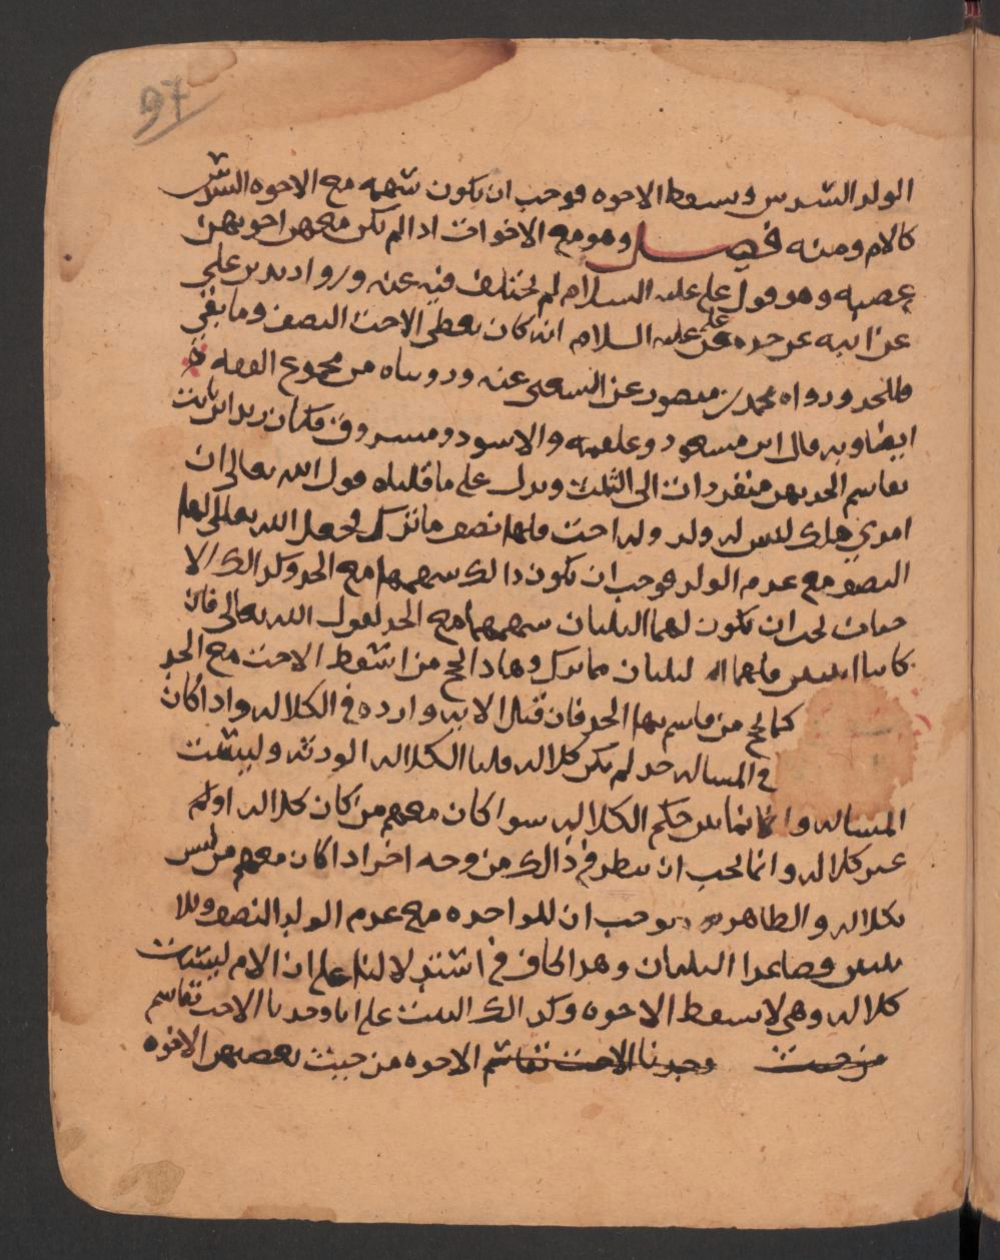 97
الولد السدس ويسقط الاخوه فوجب ان يكون سهمه مع الاخوه السدس
كالام ومنه فصل وهو مع الاخوات اذا لم يكن معهن اخوهن
عصبه وهو قول علي عليه السلام لم يختلف فيه عنه وروا زيد بن علي
عن ابيه عن جده عن علي عليه السلام انه كان يعطي الاخت النصف وما بقي
فللجد ورواه محمد بن منصور عن الشعبي عنه ورويناه من مجموع الفقه
ايضا وبه قال ابن مسعود وعلقمه والاسود ومسروق وكان زيد ابن ثابت
يقاسم الجد بهن منفردات الى الثلث ويدل على ما قلناه قول الله تعالى ان
امرؤ هلك ليس له ولد وله اخت فلها نصف ما ترك فجعل الله تعالى لها
النصف مع عدم الولد فوجب ان يكون ذالك سهمها مع الجد وكذالك الا
ختان يجب ان يكون لهما الثلثان سهمهما مع الجد لقول الله تعالى فان
كانتا اثنتين فلهما الثلثان مما ترك وهاذا يحج من اسقط الاخت مع الجد
كما يحج من قاسم بها الجد فان قيل الايه وارده في الكلاله واذا كان
في المساله جد لم يكن كلاله قلنا الكلاله الورثه وليست
المساله وانما بين حكم الكلاله سوا كان معهم من كان كلاله او لم
غير كلاله وانما يجب ان ينظر في ذالك من وجه اخر اذا كان معهم من ليس
بكلاله والظاهر يوجب ان للواحده مع عدم الولد النصف وللا
ثنتين فصاعدا الثلثان وهذا كاف في استدلالنا على ان الام ليست
كلاله وهي لا تسقط الاخوه وكذالك البنت على انا وجدنا الاخت تقاسم
من حيث وجدنا الاخت تقاسم الاخوه من حيث يعصبهن الاخوه